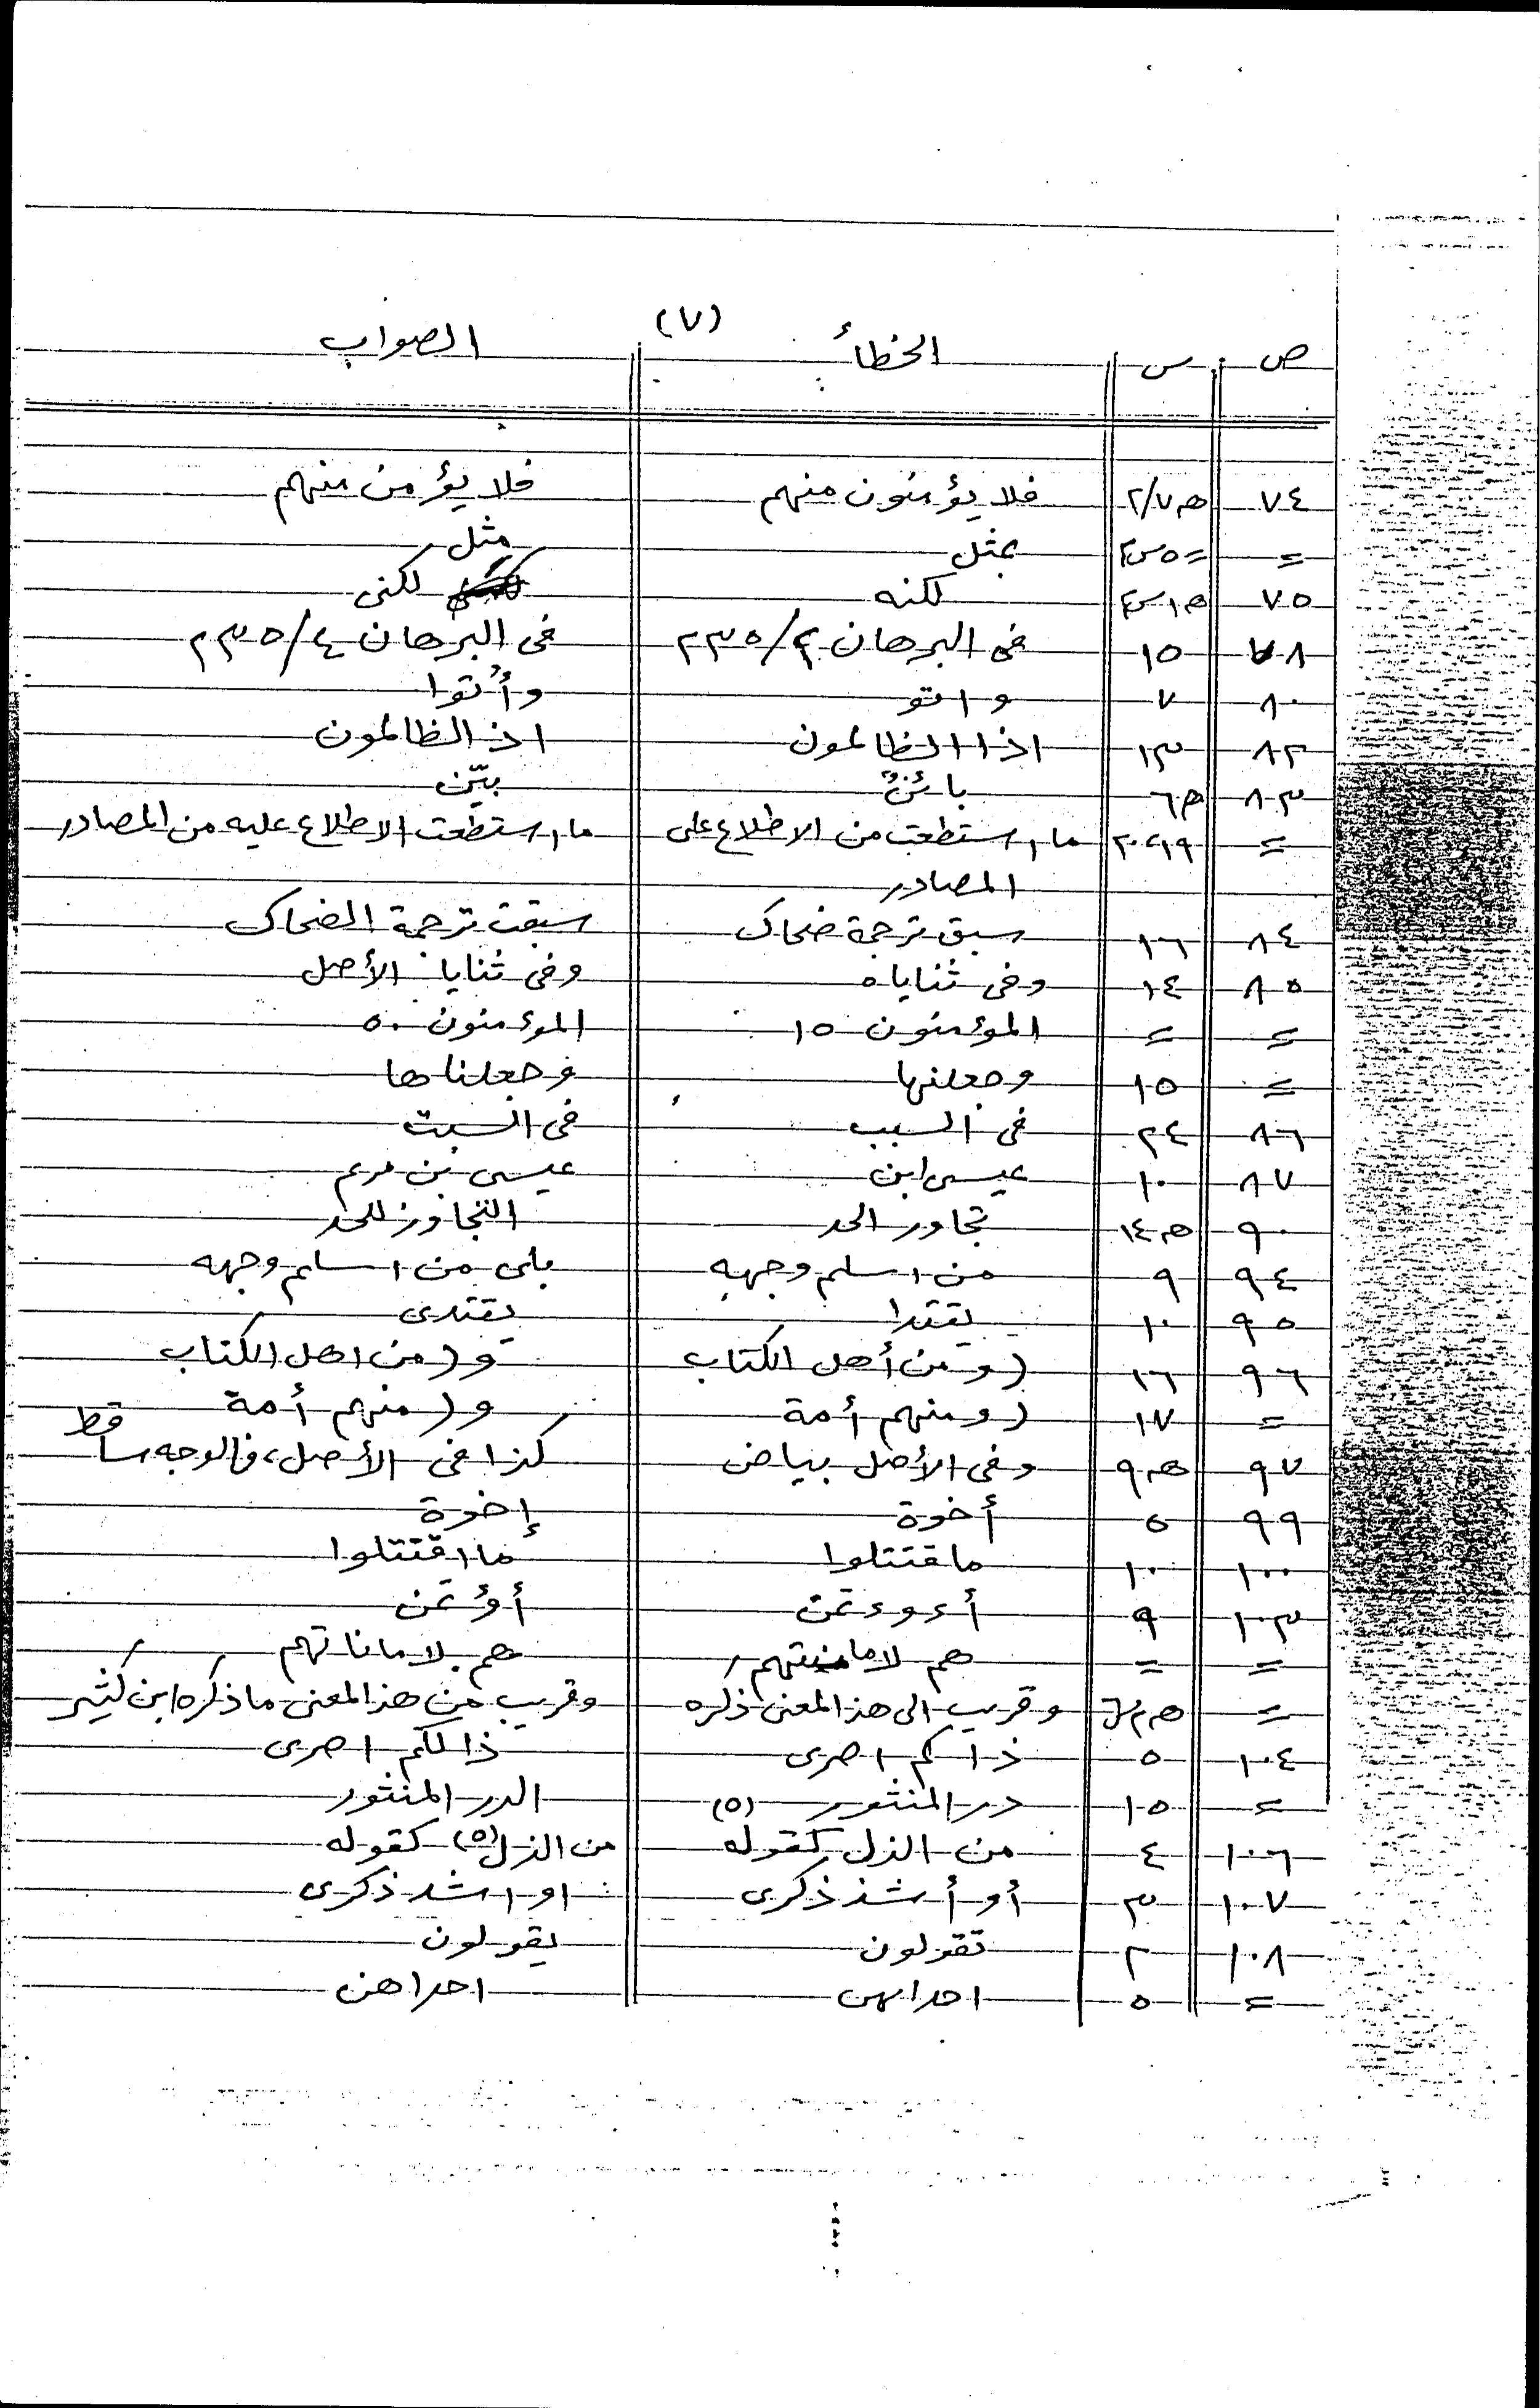 (٧)
ص س الخطأ الصواب
٧٤ هـ ٢/٧ فلا يؤمنون منهم فلا يؤمن منهم
= = ٥ س٢ بمثل مثل
٧٥ هـ ١ س٤ لكنه لكنى
٧٨ ١٥ فى البرهان ٢٣٥/٣ فى البرهان ٢٣٥/٤
٨٠ ٧ واتو وأتوا
٨٢ ١٣ اذا الظالمون اذ الظالمون
٨٣ هـ ٦ بائنٌ بيّن
= ٢٠،١٩ ما استطعت من الاطلاع على ما استطعت الاطلاع عليه من المصادر
المصادر
٨٤ ١٦ سبق ترجمة ضحاك سبقت ترجمة الضحاك
٨٥ ١٤ وفى ثناياه وفى ثنايا الأصل
= = المؤمنون ١٥ المؤمنون ٥٠
= ١٥ وجعلنها وجعلناها
٨٦ ٢٤ فى السبب فى السبت
٨٧ ١٠ عيسى ابن عيسى بن مريم
٩٠ هـ ١٤ تجاور الحد التجاوز للحد
٩٤ ٩ من اسلم وجهه بلى من اسلم وجهه
٩٥ ١٠ يقتدا يقتدى
٩٦ ١٦ (ومن أهل الكتاب و(من اهل الكتاب
= ١٧ (ومنهم أمة و(منهم أمة
٩٧ هـ ٩ وفى الأصل بياض كذا فى الأصل، فالوجه ساقط
٩٩ ٥ أخوة إخوة
١٠٠ ١٠ ماقتتلوا ما اقتتلوا
١٠٣ ٩ أءوءتمن أؤتمن
= = هم لامانتهم هم لاماناتهم
= هـ ٢ س٦ وقريب الى هذا المعنى ذكره وقريب من هذا المعنى ما ذكره ابن كثير
١٠٤ ٥ ذاكم اصرى ذالكم اصرى
= ١٥ در المنثور (٥) الدر المنثور
١٠٦ ٤ من الذل كقوله من الذل(٥) كقوله
١٠٧ ٣ أو أشد ذكرى او اشد ذكرى
١٠٨ ٢ تقولون يقولون
= ٥ احدابهن احداهن